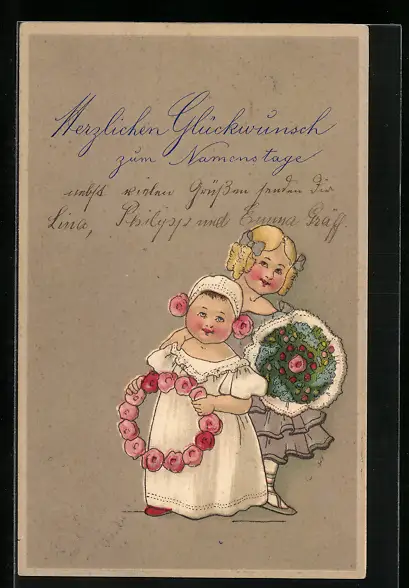 Herzlichen Glückwunsch
zum Namenstage
nebst vielen Grüßen senden Dir
Lina, Philipp und Emma Gräff.